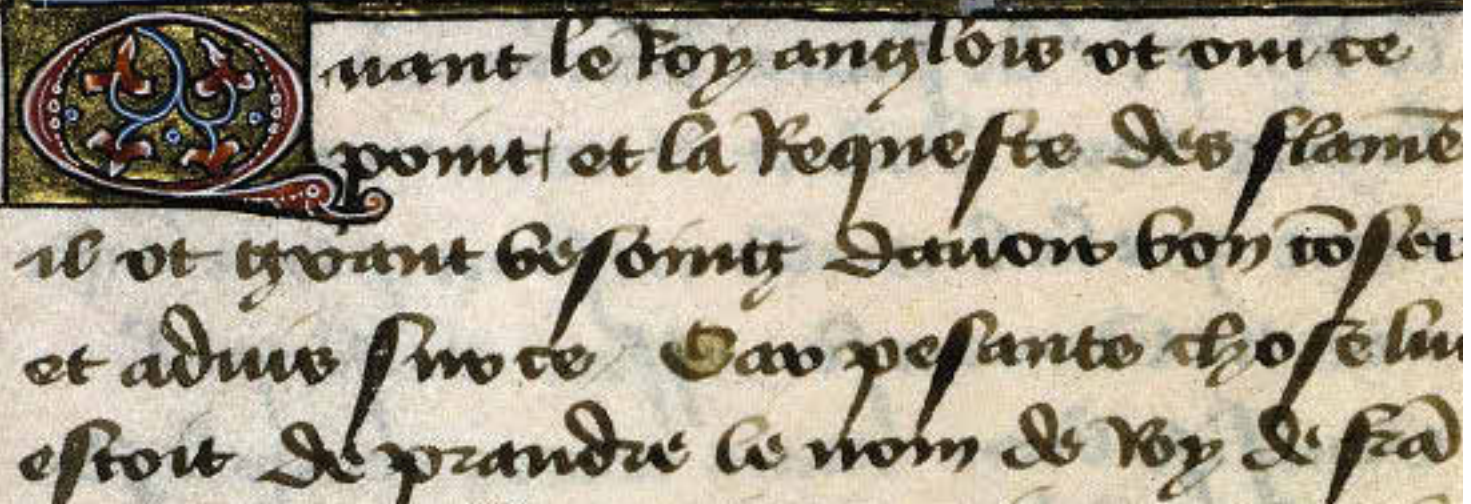 Quant le Roy anglois ot oui ce
point et la Requeste des flamē
il ot grant besoing dauoir bon cōsei
et aduis sur ce Car pesante chose lui
estoit de prandre le nom de Roy de frā